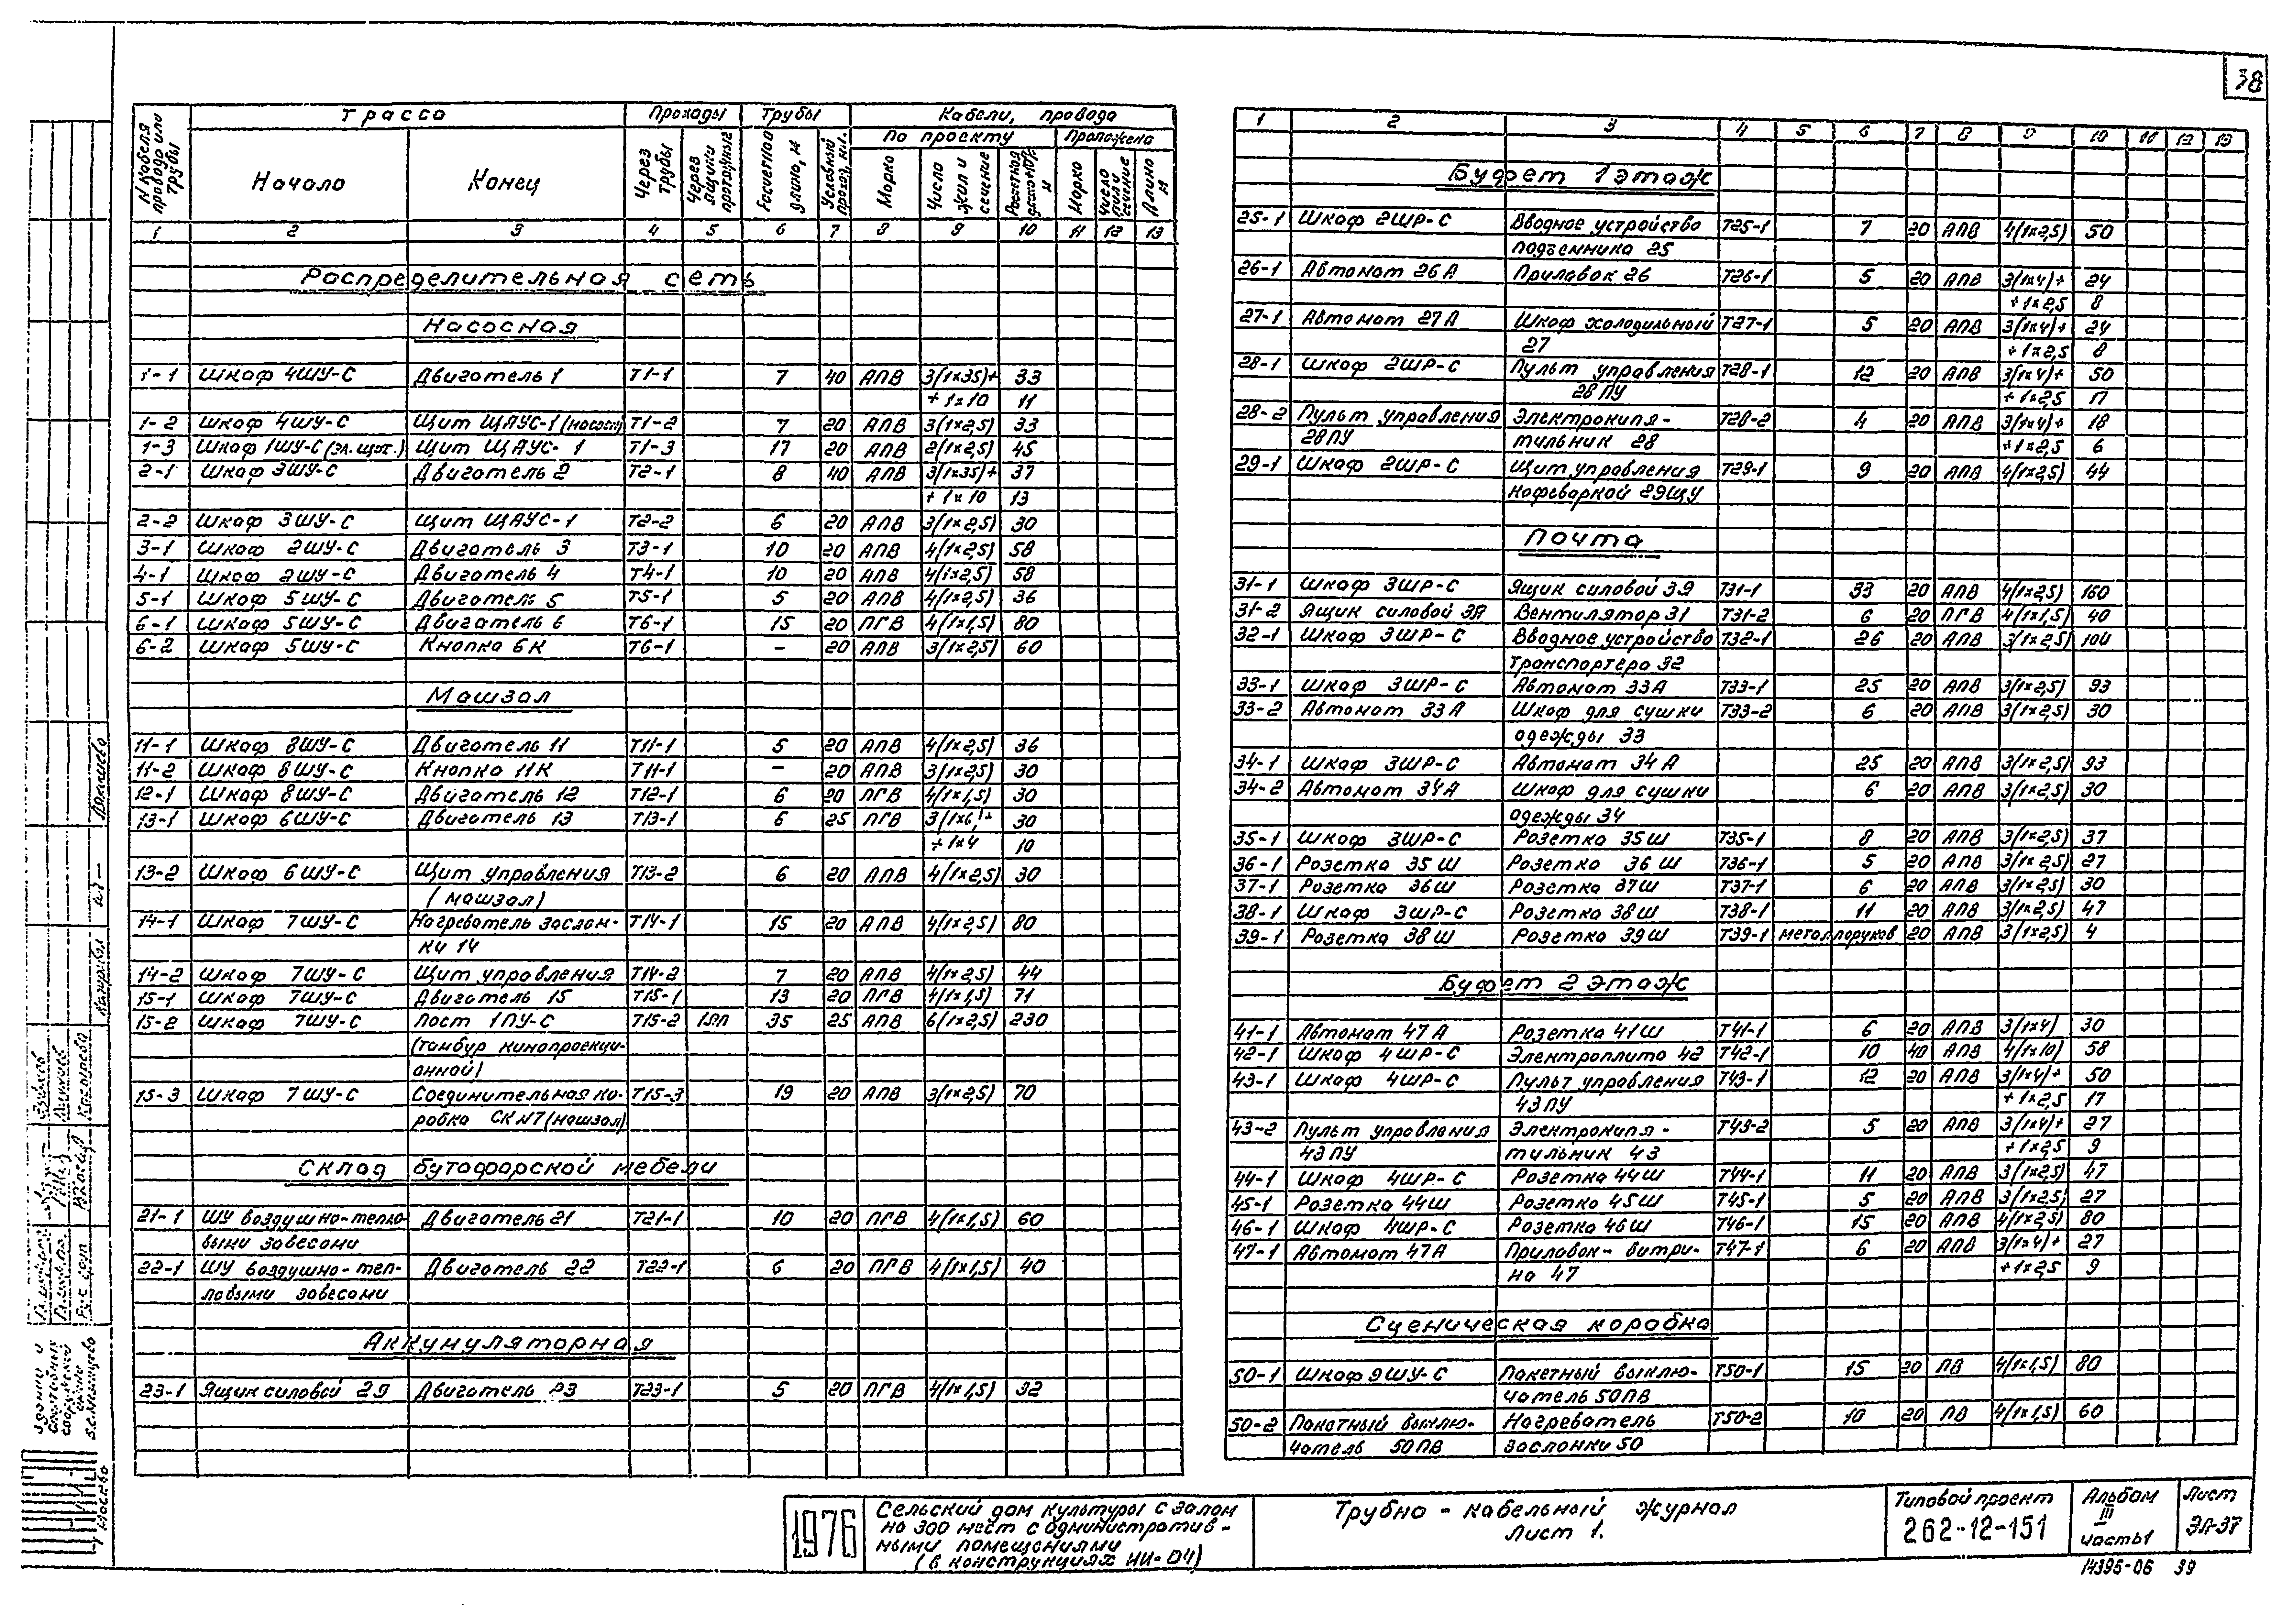 78
N кабеля провода или трубы
Трасса
Проходы
Трубы
Кабели, провода
Начало
Конец
Через трубы
Через ящики протяжные
Расчетная длина, м
Условный проход, мм.
По проекту
Проложено
Марка
Число жил и сечение
Марка
Число жил и сечение
Длина м
1 2 3 4 5 6 7 8 9 10 11 12 13
Распределительная сеть
Насосная
1-1 Шкаф 4ШУ-С Двигатель 1 Т1-1 7 40 АПВ 3(1×35)+ 33
+1×10 11
1-2 Шкаф 4ШУ-С Щит ЩАУС-1 (насосн) Т1-2 7 20 АПВ 3(1×2,5) 33
1-3 Шкаф 1ШУ-С (эл. щит.) Щит ЩАУС-1 Т1-3 17 20 АПВ 2(1×2,5) 45
2-1 Шкаф 3ШУ-С Двигатель 2 Т2-1 8 40 АПВ 3(1×35)+ 37
+1×10 13
2-2 Шкаф 3ШУ-С Щит ЩАУС-1 Т2-2 6 20 АПВ 3(1×2,5) 30
3-1 Шкаф 2ШУ-С Двигатель 3 Т3-1 10 20 АПВ 4(1×2,5) 58
4-1 Шкаф 2ШУ-С Двигатель 4 Т4-1 10 20 АПВ 4(1×2,5) 58
5-1 Шкаф 5ШУ-С Двигатель 5 Т5-1 5 20 АПВ 4(1×2,5) 36
6-1 Шкаф 5ШУ-С Двигатель 6 Т6-1 15 20 ПГВ 4(1×1,5) 80
6-2 Шкаф 5ШУ-С Кнопка 6К Т6-1 – 20 АПВ 3(1×2,5) 60
Машзал
11-1 Шкаф 8ШУ-С Двигатель 11 Т11-1 5 20 АПВ 4(1×2,5) 36
11-2 Шкаф 8ШУ-С Кнопка 11К Т11-1 – 20 АПВ 3(1×2,5) 30
12-1 Шкаф 8ШУ-С Двигатель 12 Т12-1 6 20 ПГВ 4(1×1,5) 30
13-1 Шкаф 6ШУ-С Двигатель 13 Т13-1 6 25 ПГВ 3(1×6)+ 30
+1×4 10
13-2 Шкаф 6ШУ-С Щит управления Т13-2 6 20 АПВ 4(1×2,5) 30
(машзал)
14-1 Шкаф 7ШУ-С Нагреватель заслон- Т14-1 15 20 АПВ 4(1×2,5) 80
ки 14
14-2 Шкаф 7ШУ-С Щит управления Т14-2 7 20 АПВ 4(1×2,5) 44
15-1 Шкаф 7ШУ-С Двигатель 15 Т15-1 13 20 ПГВ 4(1×1,5) 71
15-2 Шкаф 7ШУ-С Пост 1ПУ-С Т15-2 1ЯП 35 25 АПВ 6(1×2,5) 230
(тамбур кинопроекци-
онной)
15-3 Шкаф 7ШУ-С Соединительная ко- Т15-3 19 20 АПВ 3(1×2,5) 70
робка СК№7 (машзал)
Склад бутафорской мебели
21-1 ШУ воздушно-тепло- Двигатель 21 Т21-1 10 20 ПГВ 4(1×1,5) 60
выми завесами
22-1 ШУ воздушно-теп- Двигатель 22 Т22-1 6 20 ПГВ 4(1×1,5) 40
ловыми завесами
Аккумуляторная
23-1 Ящик силовой 2Я Двигатель 23 Т23-1 5 20 ПГВ 4(1×1,5) 32
1 2 3 4 5 6 7 8 9 10 11 12 13
Буфет 1 этаж
25-1 Шкаф 2ШР-С Вводное устройство Т25-1 7 20 АПВ 4(1×2,5) 50
подъемника 25
26-1 Автомат 26А Прилавок 26 Т26-1 5 20 АПВ 3(1×4)+ 24
+1×2,5 8
27-1 Автомат 27А Шкаф холодильный Т27-1 5 20 АПВ 3(1×4)+ 24
27 +1×2,5 8
28-1 Шкаф 2ШР-С Пульт управления Т28-1 12 20 АПВ 3(1×4)+ 50
28ПУ +1×2,5 17
28-2 Пульт управления Электрокипя- Т28-2 4 20 АПВ 3(1×4)+ 18
28ПУ тильник 28 +1×2,5 6
29-1 Шкаф 2ШР-С Щит управления Т29-1 9 20 АПВ 4(1×2,5) 44
кофеваркой 29ЩУ
Почта
31-1 Шкаф 3ШР-С Ящик силовой 3Я Т31-1 33 20 АПВ 4(1×2,5) 160
31-2 Ящик силовой 3Я Вентилятор 31 Т31-2 6 20 ПГВ 4(1×1,5) 40
32-1 Шкаф 3ШР-С Вводное устройство Т32-1 26 20 АПВ 3(1×2,5) 100
транспортера 32
33-1 Шкаф 3ШР-С Автомат 33А Т33-1 25 20 АПВ 3(1×2,5) 93
33-2 Автомат 33А Шкаф для сушки Т33-2 6 20 АПВ 3(1×2,5) 30
одежды 33
34-1 Шкаф 3ШР-С Автомат 34А 25 20 АПВ 3(1×2,5) 93
34-2 Автомат 34А Шкаф для сушки 6 20 АПВ 3(1×2,5) 30
одежды 34
35-1 Шкаф 3ШР-С Розетка 35Ш Т35-1 8 20 АПВ 3(1×2,5) 37
36-1 Розетка 35Ш Розетка 36Ш Т36-1 5 20 АПВ 3(1×2,5) 27
37-1 Розетка 36Ш Розетка 37Ш Т37-1 6 20 АПВ 3(1×2,5) 30
38-1 Шкаф 3ШР-С Розетка 38Ш Т38-1 11 20 АПВ 3(1×2,5) 47
39-1 Розетка 38Ш Розетка 39Ш Т39-1 металлорукав 20 АПВ 3(1×2,5) 4
Буфет 2 этаж
41-1 Автомат 47А Розетка 41Ш Т41-1 6 20 АПВ 3(1×4) 30
42-1 Шкаф 4ШР-С Электроплита 42 Т42-1 10 40 АПВ 4(1×10) 58
43-1 Шкаф 4ШР-С Пульт управления Т43-1 12 20 АПВ 3(1×4)+ 50
43ПУ +1×2,5 17
43-2 Пульт управления Электрокипя- Т43-2 5 20 АПВ 3(1×4)+ 27
43ПУ тильник 43 +1×2,5 9
44-1 Шкаф 4ШР-С Розетка 44Ш Т44-1 11 20 АПВ 3(1×2,5) 47
45-1 Розетка 44Ш Розетка 45Ш Т45-1 5 20 АПВ 3(1×2,5) 27
46-1 Шкаф 4ШР-С Розетка 46Ш Т46-1 15 20 АПВ 4(1×2,5) 80
47-1 Автомат 47А Прилавок-витри- Т47-1 6 20 АПВ 3(1×4)+ 27
на 47 +1×2,5 9
Сценическая коробка
50-1 Шкаф 9ШУ-С Пакетный выклю- Т50-1 15 20 ПВ 4(1×1,5) 80
чатель 50ПВ
50-2 Пакетный выклю- Нагреватель Т50-2 10 20 ПВ 4(1×1,5) 60
чатель 50ПВ заслонки 50
1976
Сельский дом культуры с залом
на 300 мест с административ-
ными помещениями
(в конструкциях ИИ-04)
Трубно-кабельный журнал
Лист 1.
Типовой проект
262-12-151
Альбом
III
часть 1
Лист
ЭЛ-37
14395-06 39
Москва